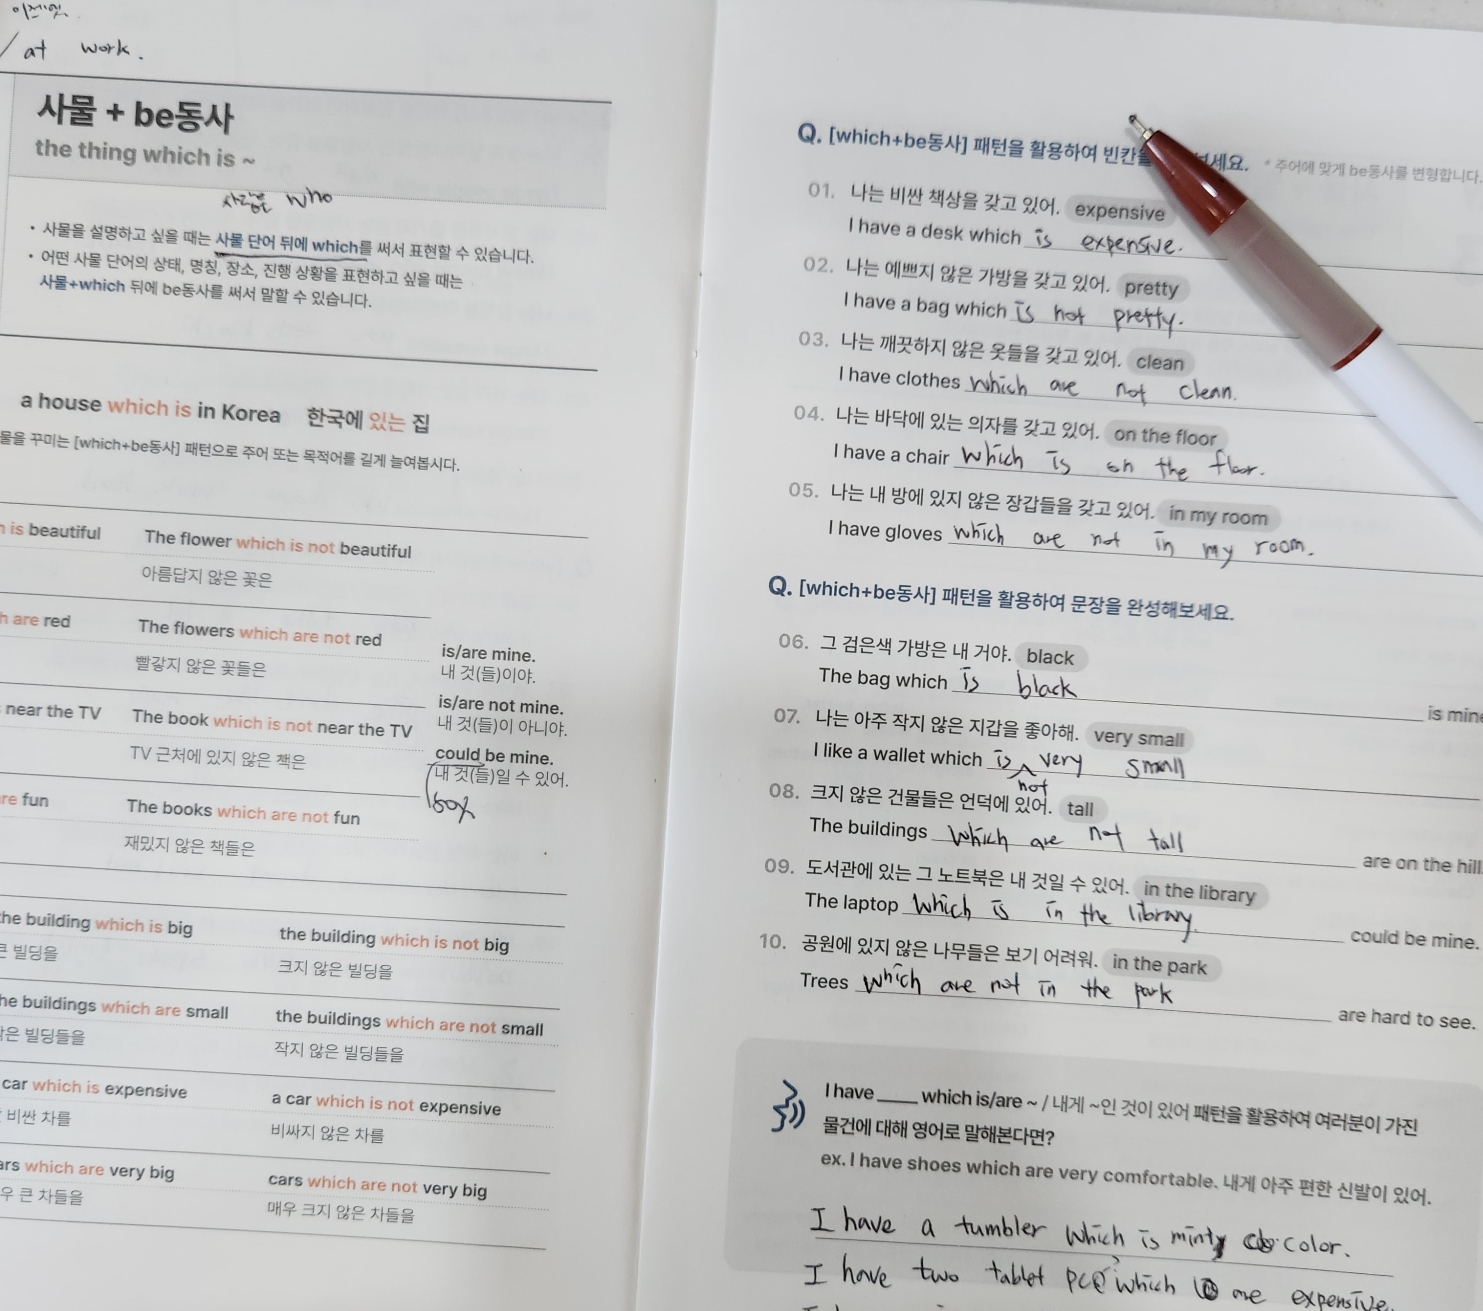 이젠 잊.
/ at work.
사물 + be동사
the thing which is ~
사람은 who
• 사물을 설명하고 싶을 때는 사물 단어 뒤에 which를 써서 표현할 수 있습니다.
• 어떤 사물 단어의 상태, 명칭, 장소, 진행 상황을 표현하고 싶을 때는
사물+which 뒤에 be동사를 써서 말할 수 있습니다.
a house which is in Korea 한국에 있는 집
물을 꾸미는 [which+be동사] 패턴으로 주어 또는 목적어를 길게 늘여봅시다.
is beautiful The flower which is not beautiful
아름답지 않은 꽃은
are red The flowers which are not red
빨갛지 않은 꽃들은
near the TV The book which is not near the TV
TV 근처에 있지 않은 책은
re fun The books which are not fun
재밌지 않은 책들은
is/are mine.
내 것(들)이야.
is/are not mine.
내 것(들)이 아니야.
could be mine.
내 것(들)일 수 있어.
60%
the building which is big the building which is not big
큰 빌딩을 크지 않은 빌딩을
he buildings which are small the buildings which are not small
은 빌딩들을 작지 않은 빌딩들을
car which is expensive a car which is not expensive
비싼 차를 비싸지 않은 차를
ars which are very big cars which are not very big
우 큰 차들을 매우 크지 않은 차들을
Q. [which+be동사] 패턴을 활용하여 빈칸을 보세요. * 주어에 맞게 be동사를 변형합니다.
01. 나는 비싼 책상을 갖고 있어. expensive
I have a desk which is expensive.
02. 나는 예쁘지 않은 가방을 갖고 있어. pretty
I have a bag which is not pretty.
03. 나는 깨끗하지 않은 옷들을 갖고 있어. clean
I have clothes which are not clean.
04. 나는 바닥에 있는 의자를 갖고 있어. on the floor
I have a chair which is on the floor.
05. 나는 내 방에 있지 않은 장갑들을 갖고 있어. in my room
I have gloves which are not in my room.
Q. [which+be동사] 패턴을 활용하여 문장을 완성해보세요.
06. 그 검은색 가방은 내 거야. black
The bag which is black is mine
07. 나는 아주 작지 않은 지갑을 좋아해. very small
I like a wallet which is not very small
08. 크지 않은 건물들은 언덕에 있어. tall
The buildings which are not tall are on the hill.
09. 도서관에 있는 그 노트북은 내 것일 수 있어. in the library
The laptop which is in the library. could be mine.
10. 공원에 있지 않은 나무들은 보기 어려워. in the park
Trees which are not in the park are hard to see.
I have ____ which is/are ~ / 내게 ~인 것이 있어 패턴을 활용하여 여러분이 가진
물건에 대해 영어로 말해본다면?
ex. I have shoes which are very comfortable. 내게 아주 편한 신발이 있어.
I have a tumbler which is minty color.
I have two tablet PC which are expensive.